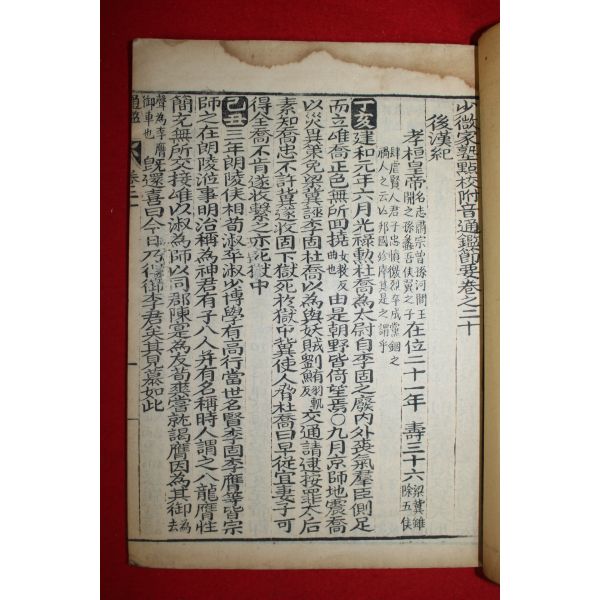 少微家塾點校附音通鑑節要卷之二十
後漢紀
孝桓皇帝名志肅宗曾孫河間王開之孫蠡吾侯翼之子在位二十一年 壽三十六梁冀雖除五侯
肆虐賢人君子忠憤激烈卒成黨錮之禍人之云亡邦國殄瘁其是之謂乎
丁亥建和元年六月光祿勳杜喬為太尉自李固之廢內外喪氣羣臣側足
而立唯喬正色無所回撓女教反曲也由是朝野皆倚望焉○九月京師地震喬
以災異策免梁冀誣李固杜喬以為與妖賊劉鮪羽軌反交通請逮按罪太后
素知喬忠不許冀遂收固下獄死於獄中冀使人脅杜喬曰早從宜妻子可
得全喬不肯遂收繫之亦死獄中
己丑三年朗陵侯相荀淑卒淑少博學有高行當世名賢李固李膺等皆宗
師之在朗陵涖事明治稱為神君有子八人并有名稱時人謂之八龍膺性
簡亢無所交接唯以淑為師以同郡陳寔為友荀爽嘗就謁膺因為其御為去
聲為李膺御車也既還喜曰今日乃得御李君矣其見慕如此
通鑑 卷二十